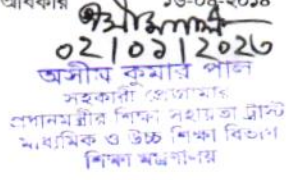 অধিকার
02/01/2023
অসীম কুমার পাল
সহকারী প্রোগ্রামার
প্রধানমন্ত্রীর শিক্ষা সহায়তা ট্রাস্ট
মাধ্যমিক ও উচ্চ শিক্ষা বিভাগ
শিক্ষা মন্ত্রণালয়